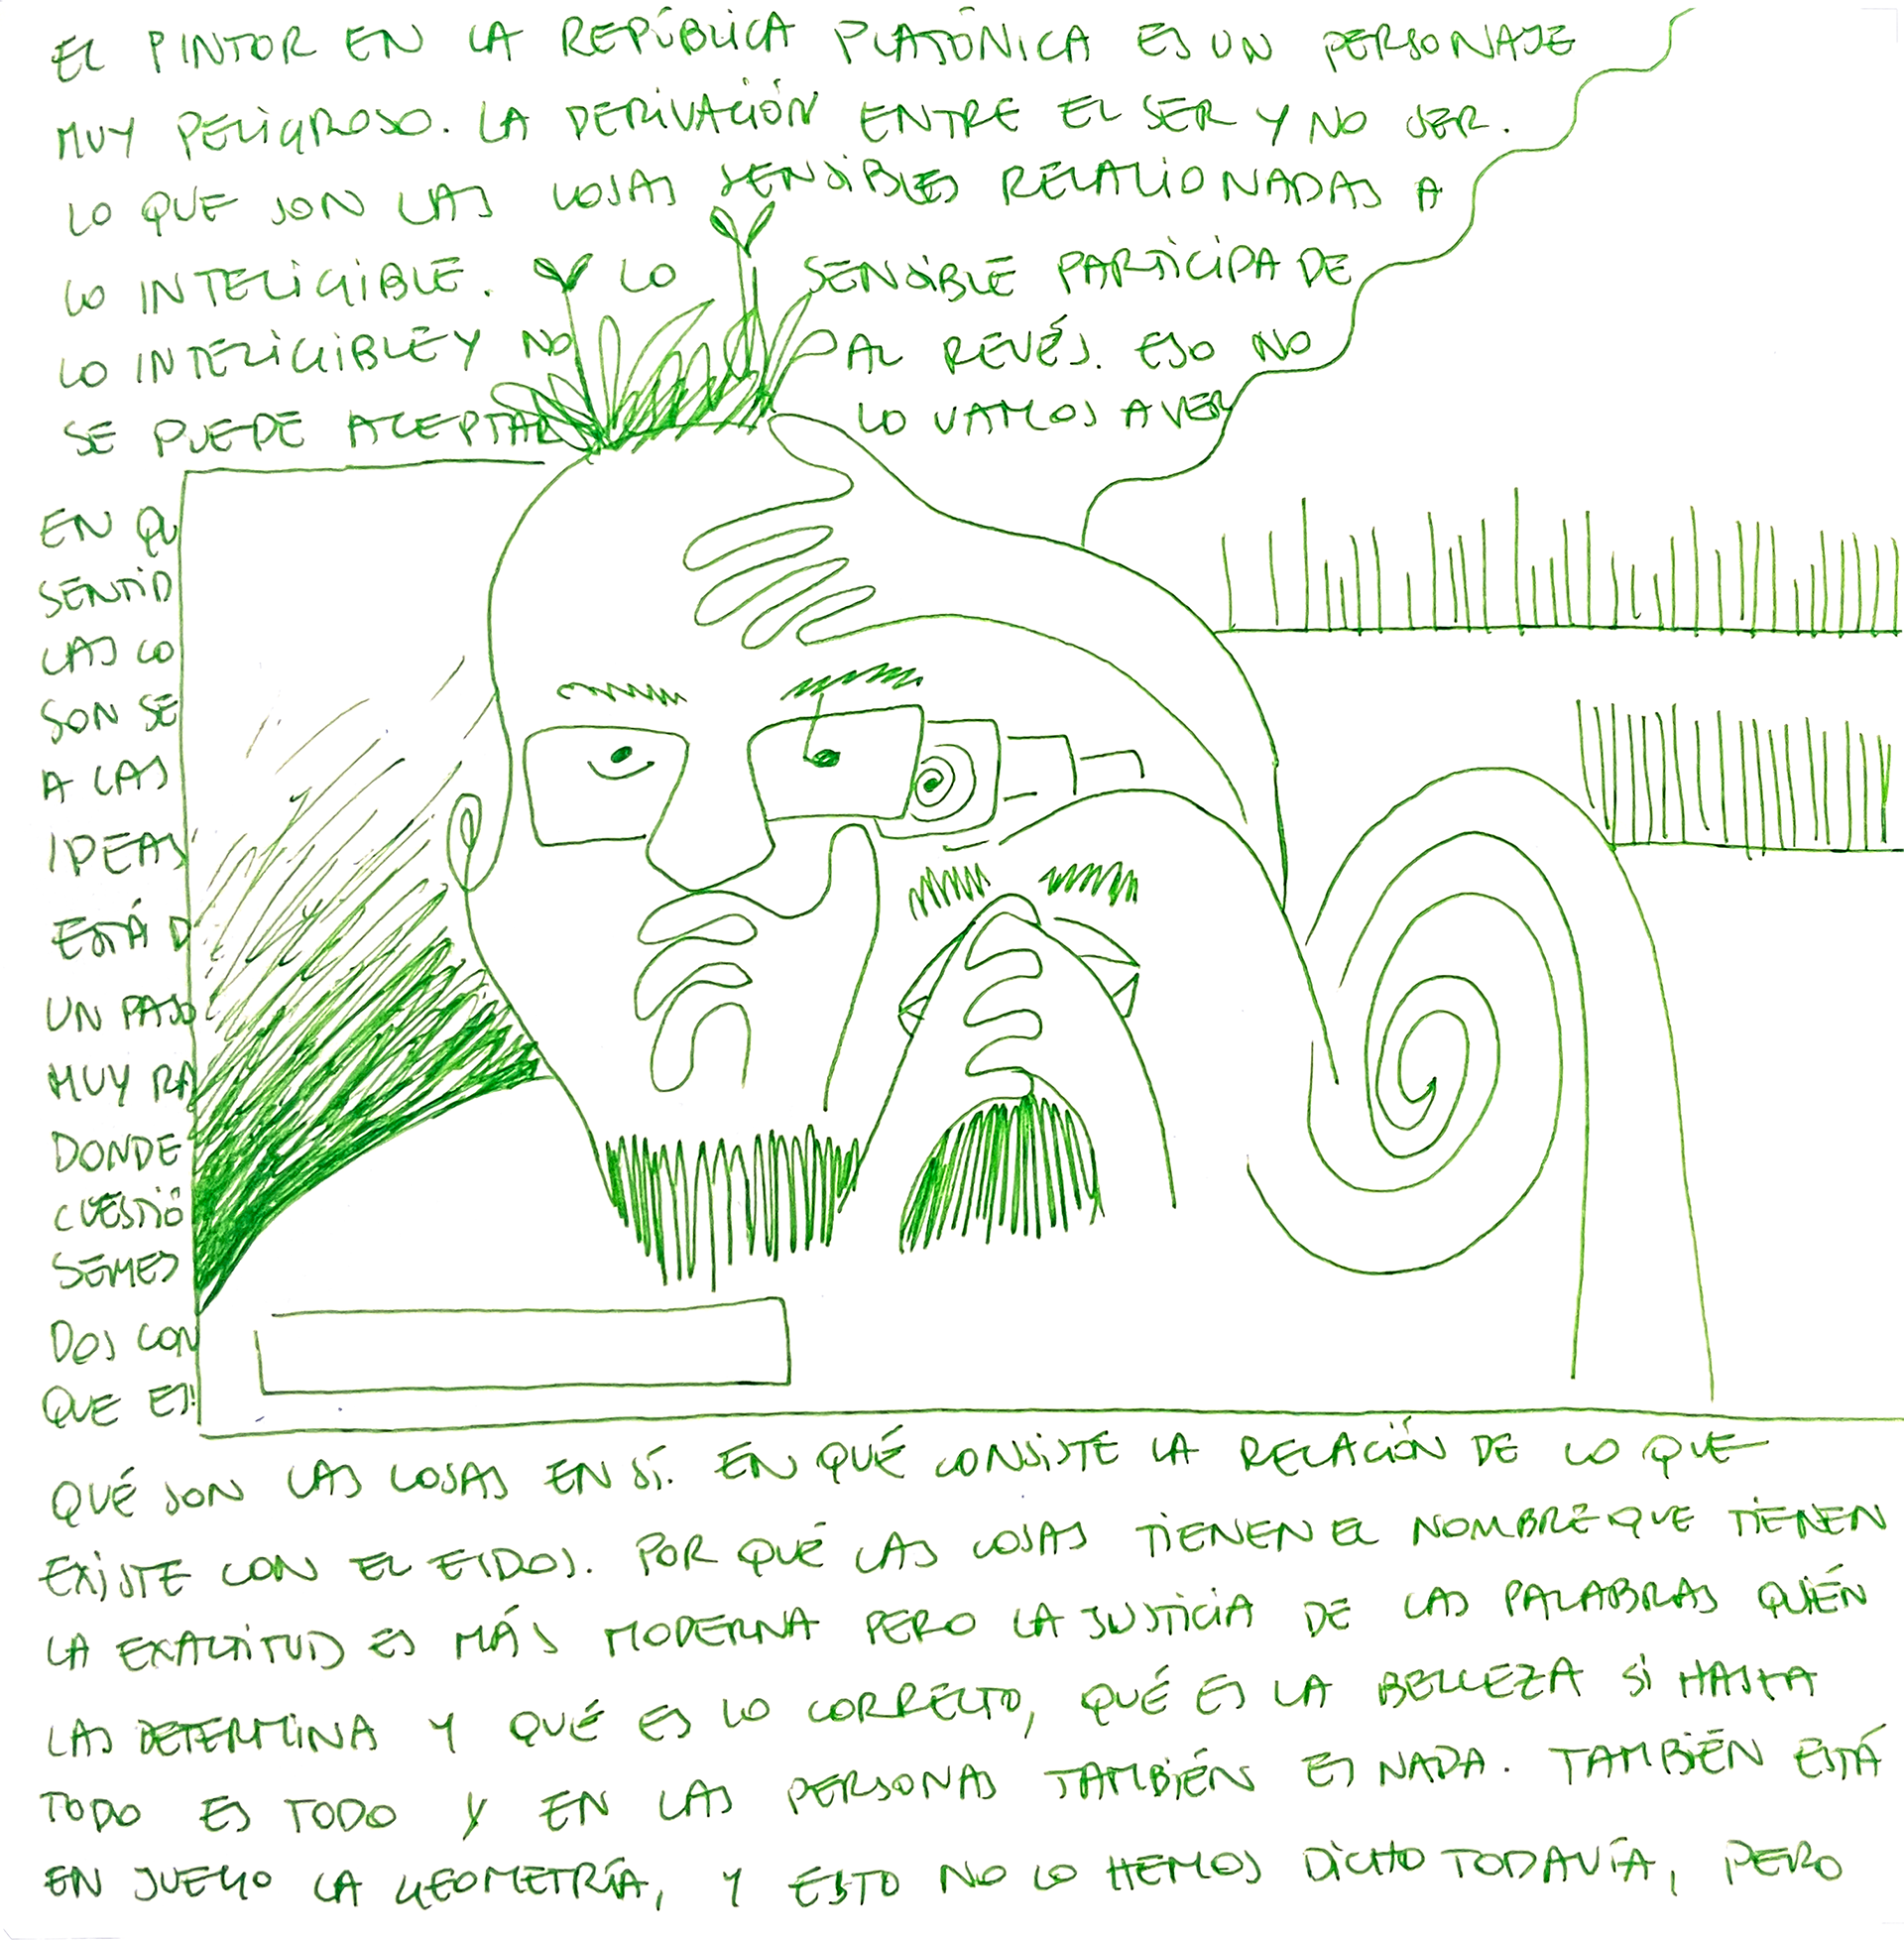 EL PINTOR EN LA REPÚBLICA PLATÓNICA ES UN PERSONAJE
MUY PELIGROSO. LA DERIVACIÓN ENTRE EL SER Y NO SER.
LO QUE SON LAS COSAS SENSIBLES RELACIONADAS A
LO INTELIGIBLE. Y LO SENSIBLE PARTICIPA DE
LO INTELIGIBLE Y NO AL REVÉS. ESO NO
SE PUEDE ACEPTAR LO VAMOS A VER
EN QU
SENTID
LAS CO
SON SE
A LAS
IDEAS
ESTÁ D
UN PASO
MUY RA
DONDE
CUESTIÓ
SEMEJ
DOS CON
QUE ES
QUÉ SON LAS COSAS EN SÍ. EN QUÉ CONSISTE LA RELACIÓN DE LO QUE
EXISTE CON EL EIDOS. POR QUÉ LAS COSAS TIENEN EL NOMBRE QUE TIENEN
LA EXACTITUD ES MÁS MODERNA PERO LA JUSTICIA DE LAS PALABRAS QUIÉN
LAS DETERMINA Y QUÉ ES LO CORRECTO, QUÉ ES LA BELLEZA SI HASTA
TODO ES TODO Y EN LAS PERSONAS TAMBIÉN ES NADA. TAMBIÉN ESTÁ
EN JUEGO LA GEOMETRÍA, Y ESTO NO LO HEMOS DICHO TODAVÍA, PERO